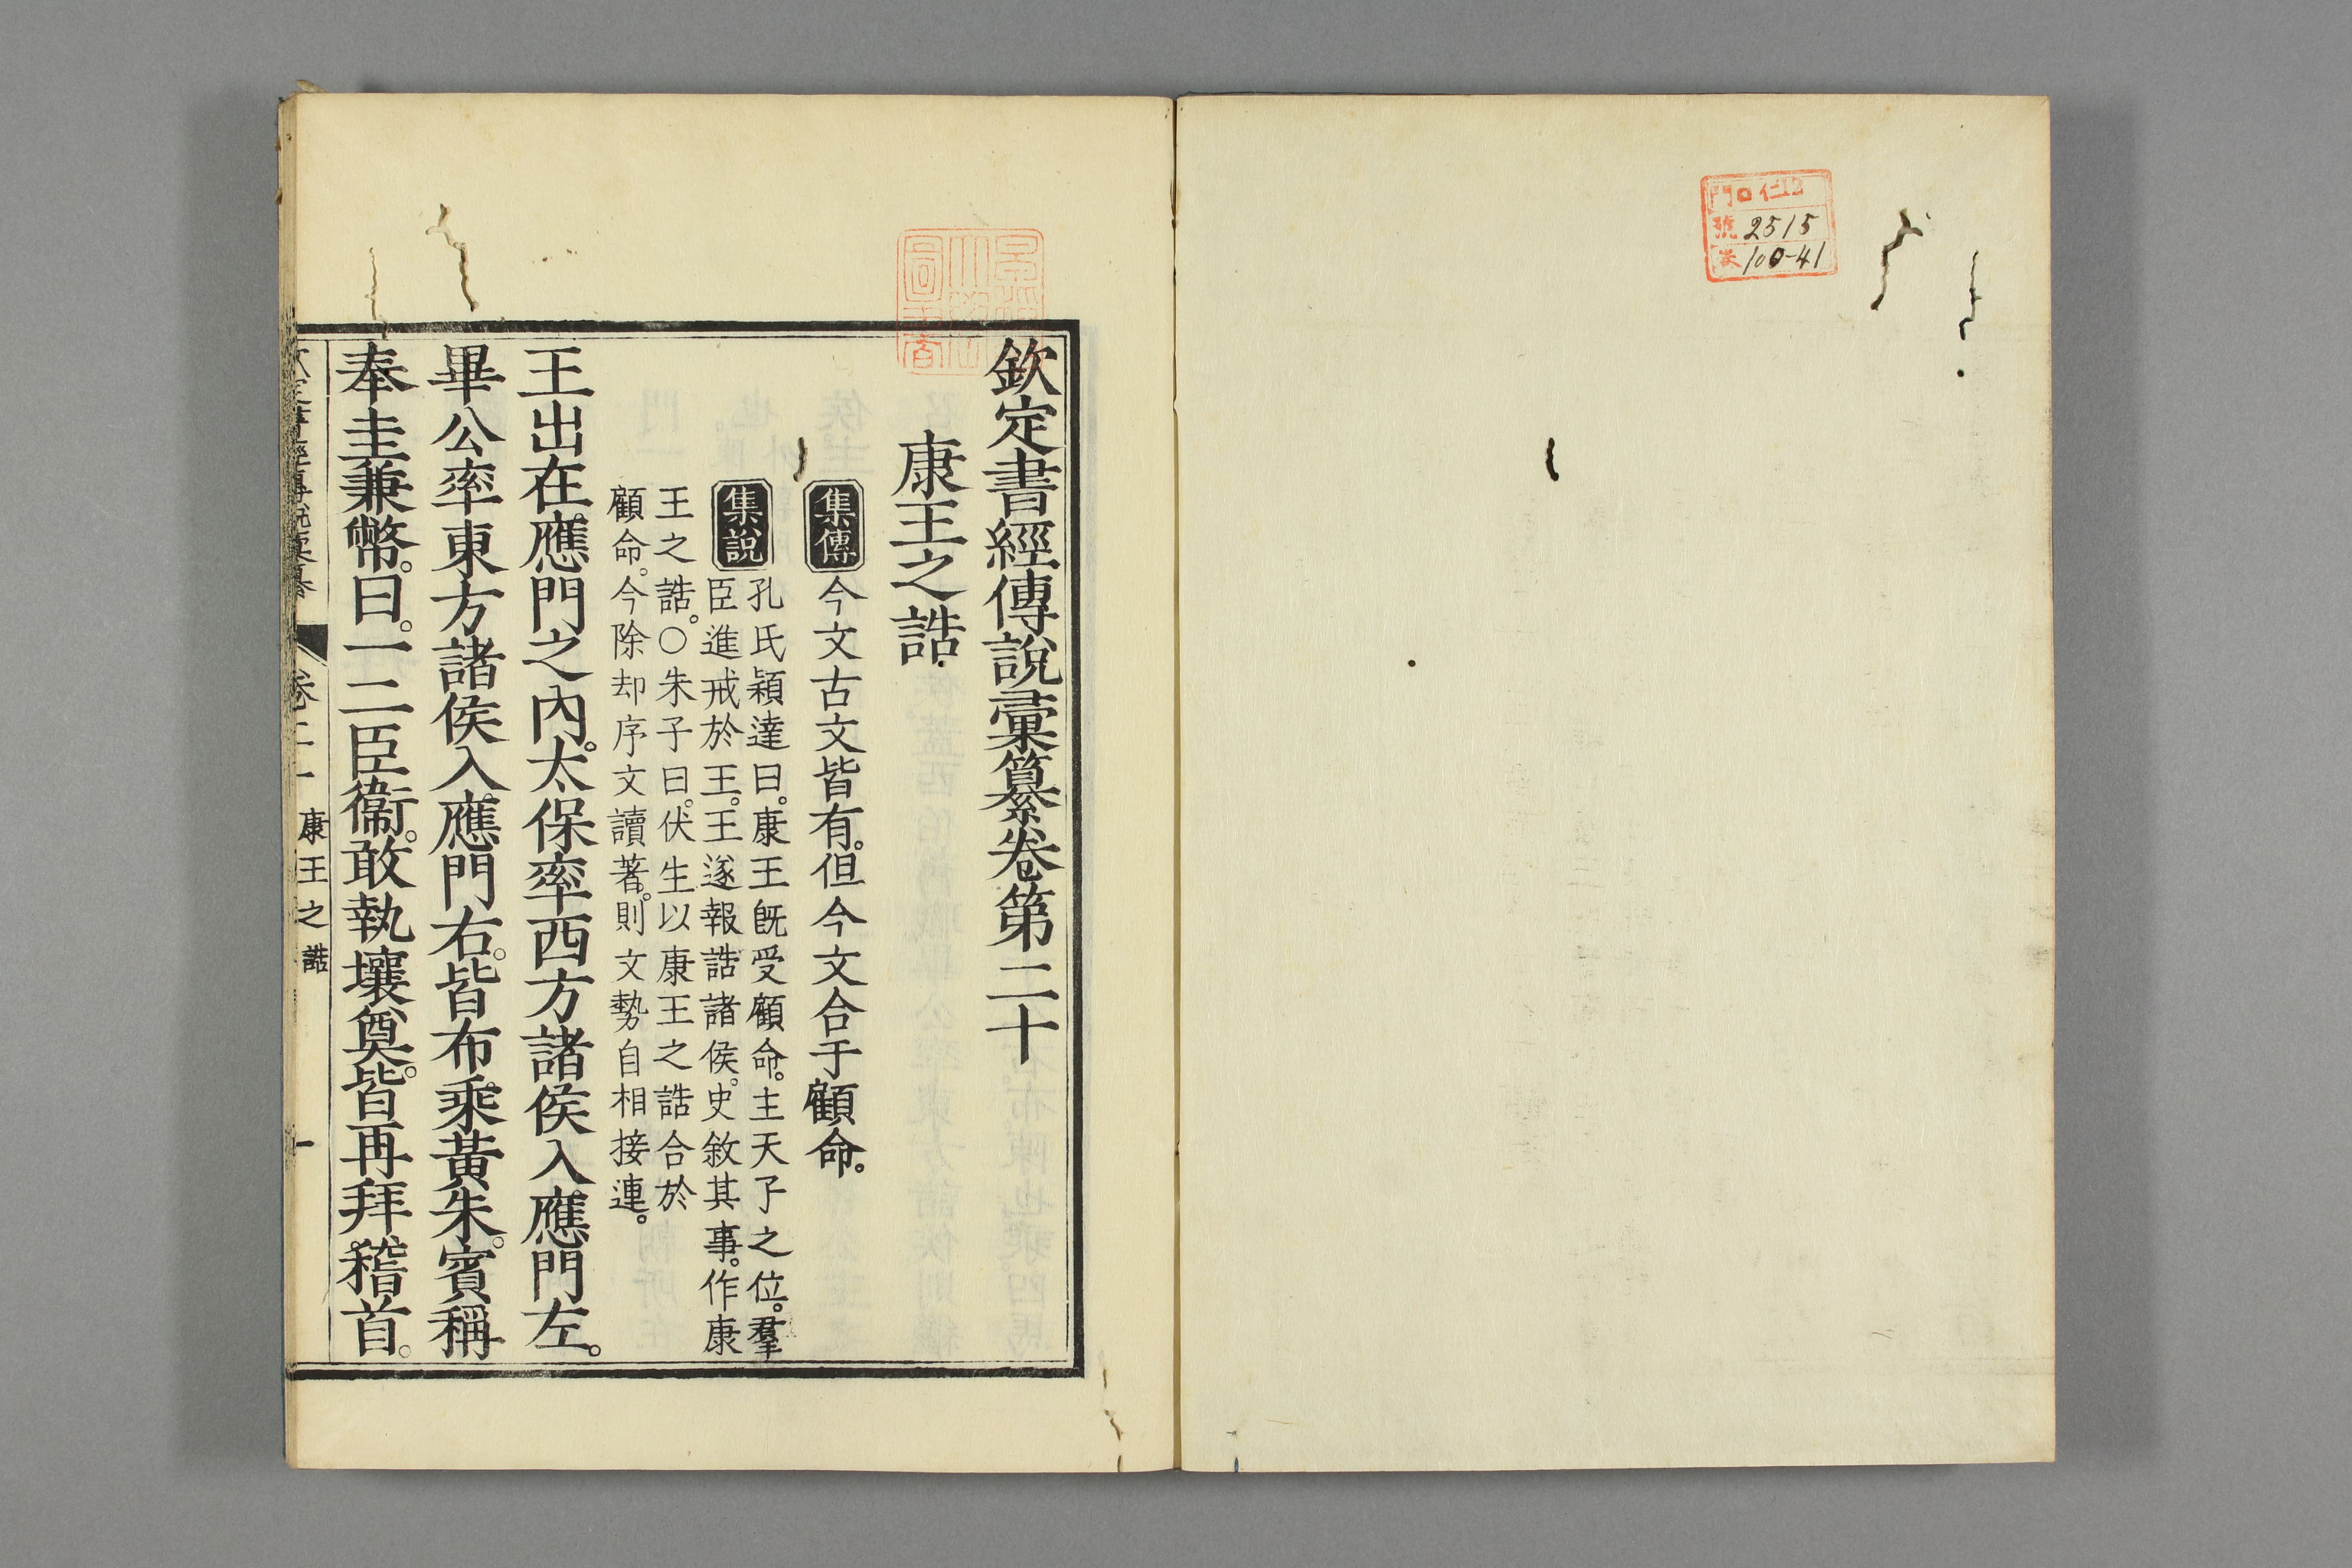 門 ロ仁12
號 2515
100-41
欽定書經傳說彙纂卷第二十
康王之誥
集傳 今文古文皆有。但今文合于顧命。
集說 孔氏穎達曰。康王既受顧命。主天子之位。羣
臣進戒於王。王遂報誥諸侯。史敘其事。作康
王之誥。○朱子曰。伏生以康王之誥合於
顧命。今除却序文讀著。則文勢自相接連。
王出在應門之內。太保率西方諸侯入應門左。
畢公率東方諸侯入應門右。皆布乘黃朱。賓稱
奉圭兼幣。曰。一二臣衞。敢執壤奠。皆再拜稽首。
康王之誥 一